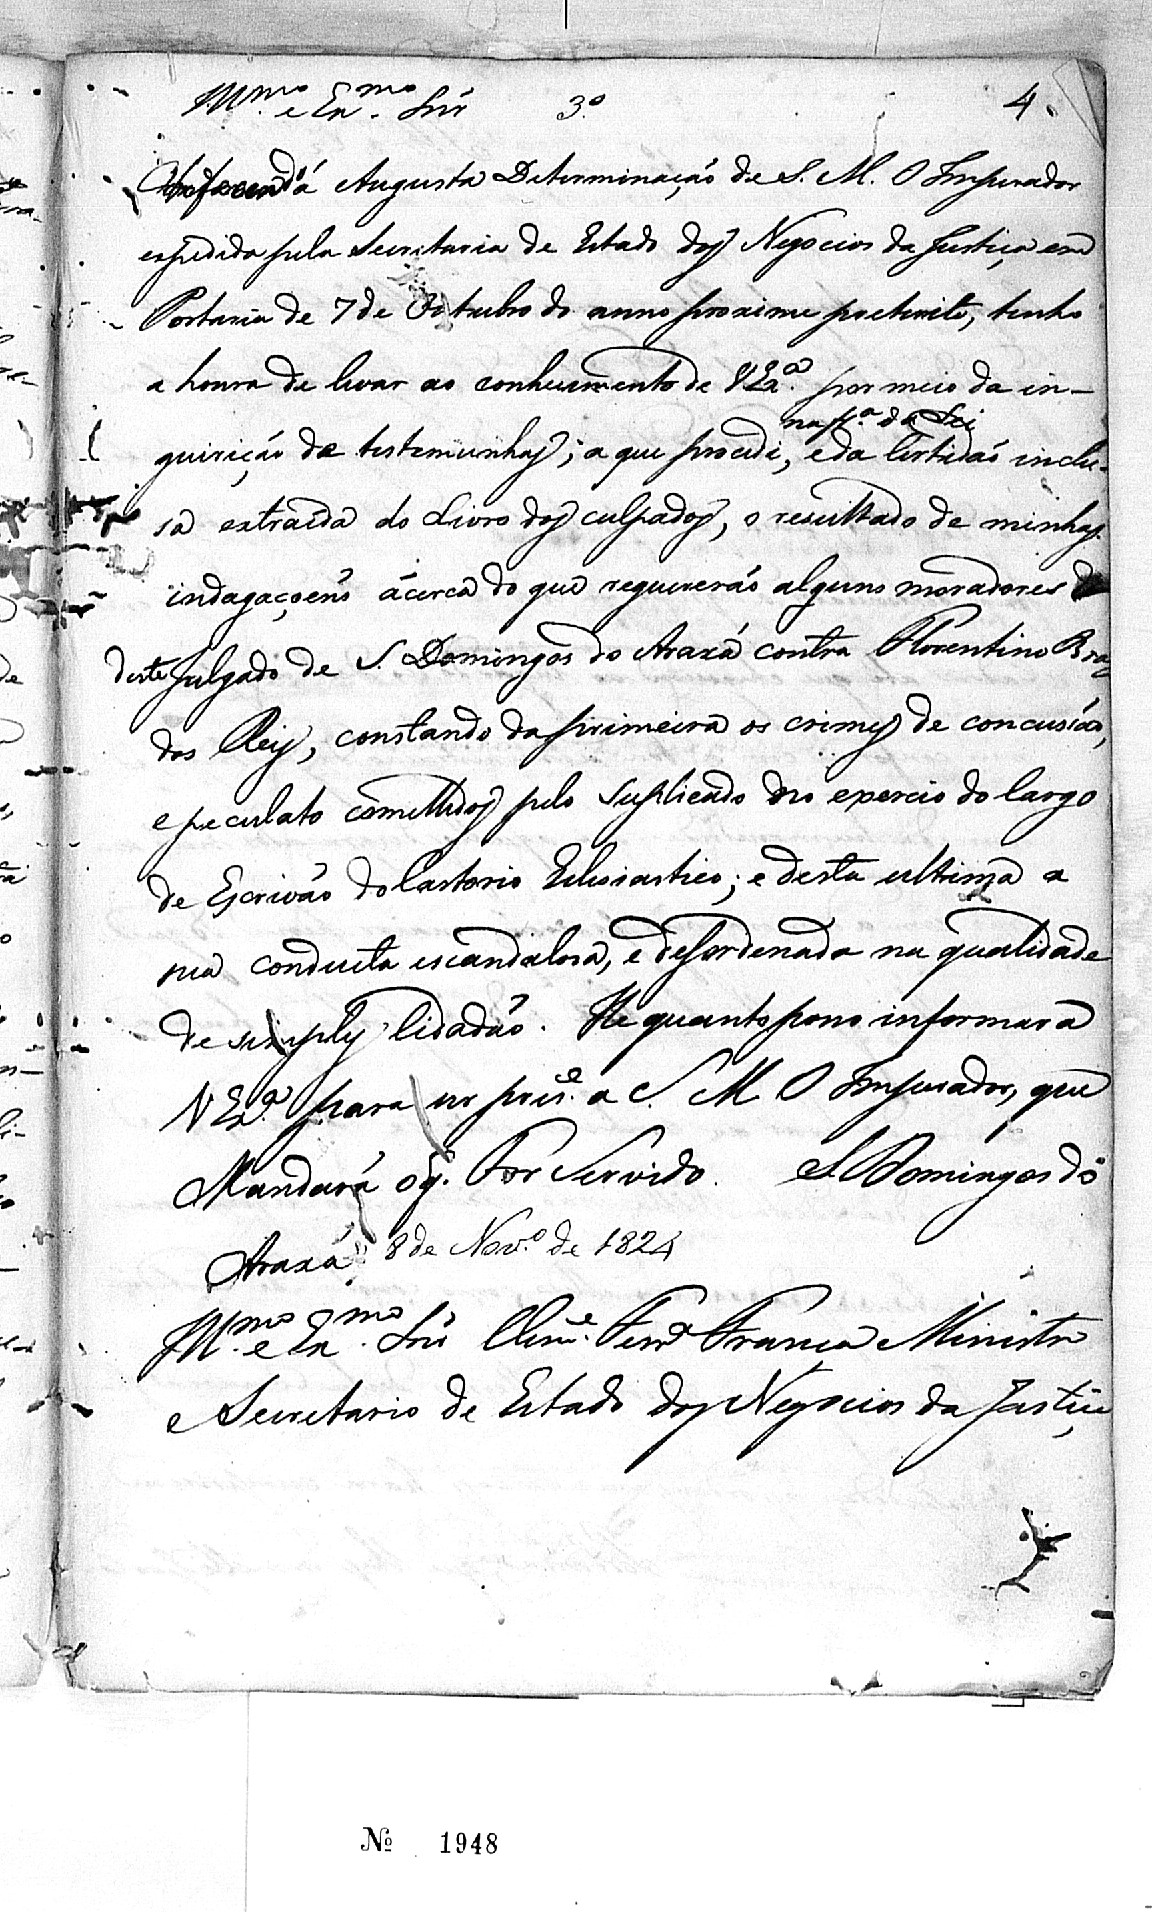 Illmo. e Exmo. Snr 3º. 4.
á Augusta Determinação de S. M. O Imperador
espedida pela Secretaria de Estado dos Negocios da Justiça em
Portaria de 7 de Outubro do anno proximo preterito, tenho
a honra de levar ao conhecimento de V Exa. por meio da in-
na fa. da Lei
quirição de testemunhas; a que procedi, e da Certidaõ inclu-
sa extraida do Livro dos culpados, o resultado de minhas
indagaçoens ácerca do que requereraõ alguns moradores
deste Julgado de S. Domingos do Araxá contra Florentino Braz
dos Reis, constando da primeira os crimes de concusão,
e peculato comettidos pelo Suplicado no exercio do Cargo
de Escrivão do Cartorio Eclesiastico; e desta ultima a
sua conducta escandalosa, e desordenada na qualidade
de simples Cidadão. He quanto posso informar a
V Exa. para ser prese. a S. M. O Imperador, que
Mandará o q. For Servido. S. Domingos do
Araxá 8 de Novo. de 1824
Illmo. e Exmo. Snr Cleme. Ferra França Ministro
e Secretario de Estado dos Negocios da Justiça
Nº 1948